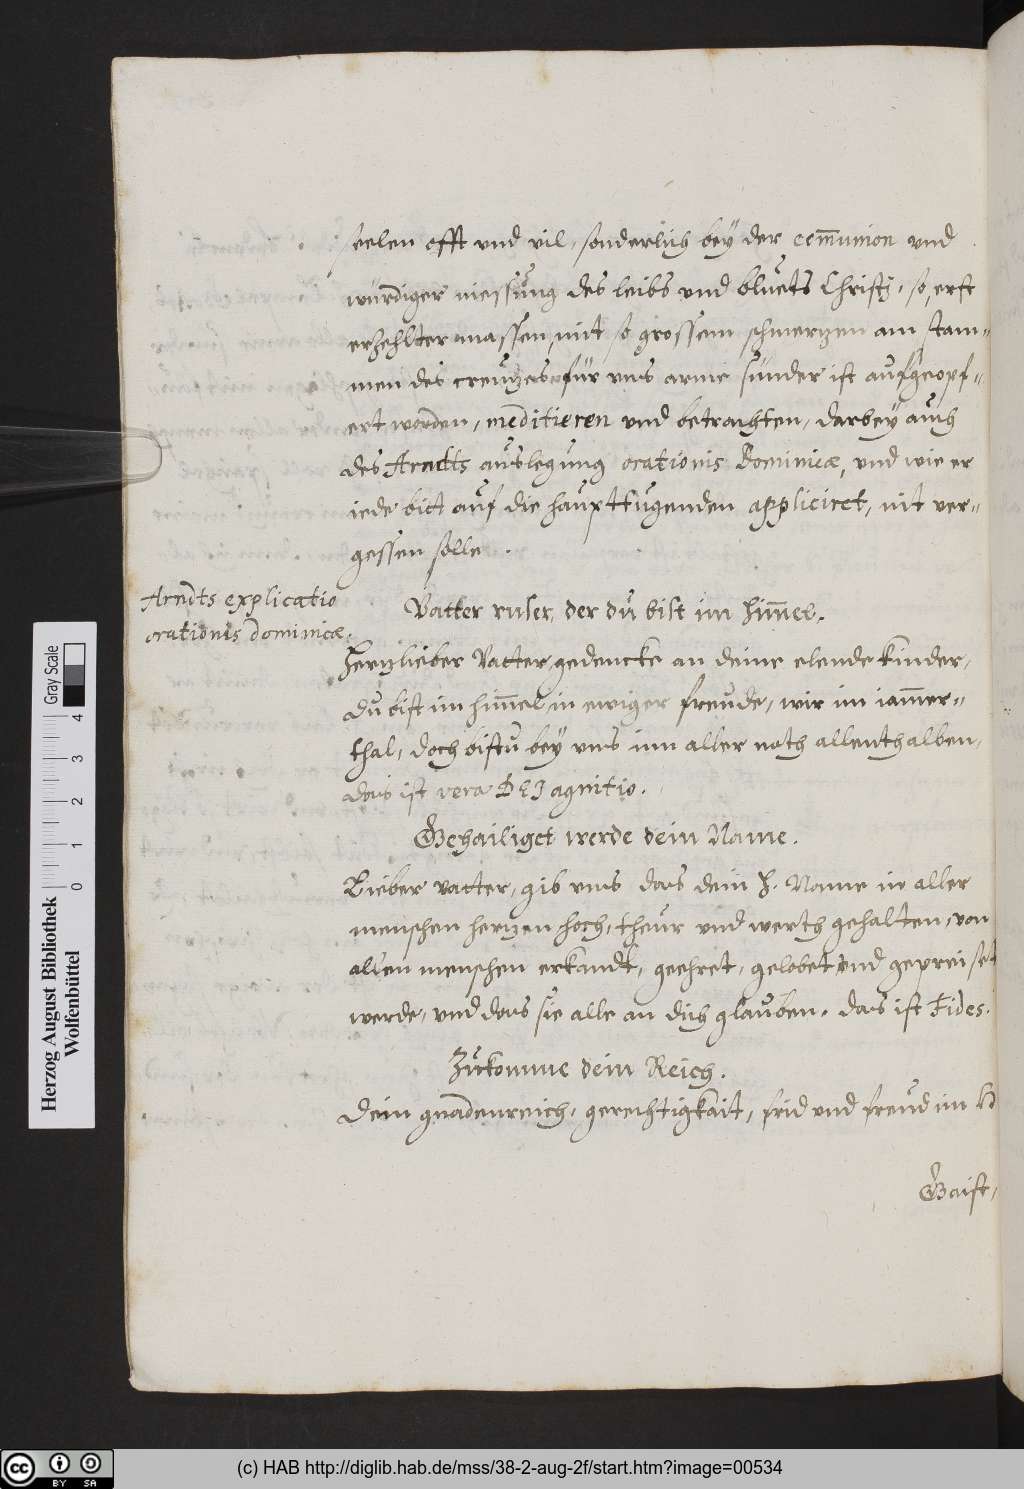 seelen offt vnd vil, sonderlich bey der com̄union vnd
würdiger niessung des leibs vnd bluets Christj, so, erst
erzehlter massen, mit so grossem schmertzen am stam-
men des creutzes für vns arme sünder ist aufgeopf-
fert worden, meditieren vnd betrachten, darbey auch
des Arndts auslegung orationis Dominicæ, vnd wie er
iede bitt auf die haupttugenden appliciret, nit ver-
gessen solle.
Arndts explicatio
orationis dominicæ.
Vatter vnser, der du bist im him̄el.
Hertzlieber Vatter, gedencke an deine elende kinder,
du bist im him̄el in ewiger freude, wir im iam̄er-
thal, doch bistu bey vns inn aller noth allenthalben,
das ist vera DEJ agnitio.
Gehailiget werde dein Name.
Lieber vatter, gib vns das dein H. Name in aller
menschen hertzen hoch, theur vnd werth gehalten, von
allen menschen erkandt, geehret, gelobet vnd gepreiset
werde, vnd das sie alle an dich glauben. das ist Fides.
Zukomme dein Reich.
Dein gnadenreich, gerechtigkait, frid vnd freud im H
Gaist,
Herzog August Bibliothek
Wolfenbüttel
0 1 2 3 4
Gray Scale
BY SA
(c) HAB http://diglib.hab.de/mss/38-2-aug-2f/start.htm?image=00534